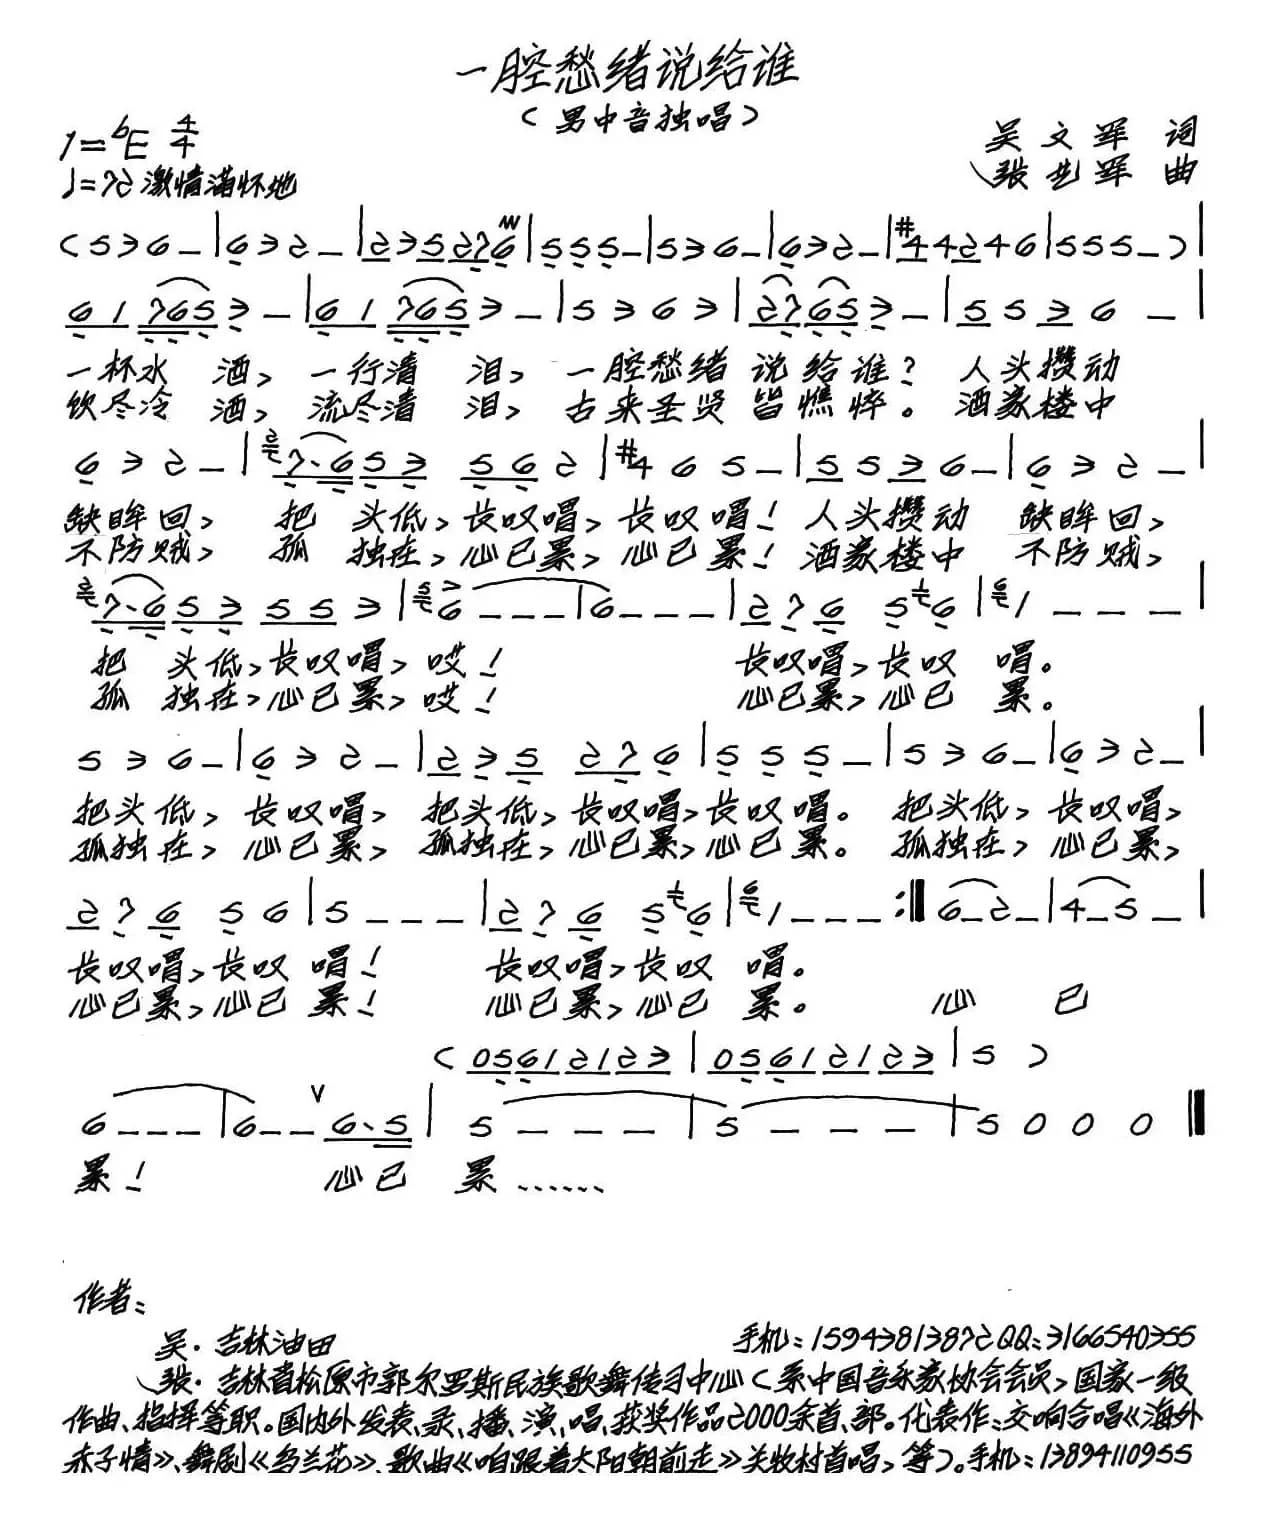 一腔愁绪说给谁
（男中音独唱）
1=bE 4/4
吴文军 词
♩=72 激情满怀地
张艺军 曲
（5 3 6 –|6 3 2 –|2 3 5 2 7 6|5 5 5 –|5 3 6 –|6 3 2 –|#4 4 2 4 6|5 5 5 –）|
6 1 7 6 5 3 –|6 1 7 6 5 3 –|5 3 6 3|2 7 6 5 3 –|5 5 3 6 –|
一杯水 酒， 一行清 泪， 一腔愁绪 说给谁？ 人头攒动
饮尽冷 酒， 流尽清 泪， 古来圣贤 皆憔悴。 酒家楼中
6 3 2 –|7·6 5 3 5 6 2|#4 6 5 –|5 5 3 6 –|6 3 2 –|
缺眸回， 把 头低，长叹喟，长叹喟！ 人头攒动 缺眸回，
不防贼， 孤 独在，心已累，心已累！ 酒家楼中 不防贼，
7·6 5 3 5 5 3|6 – – –|6 – – –|2 7 6 5 6|1 – – –|
把 头低，长叹喟，哎！ 长叹喟，长叹 喟。
孤 独在，心已累，哎！ 心已累，心已 累。
5 3 6 –|6 3 2 –|2 3 5 2 7 6|5 5 5 –|5 3 6 –|6 3 2 –|
把头低， 长叹喟， 把头低，长叹喟，长叹喟。 把头低，长叹喟，
孤独在， 心已累， 孤独在，心已累，心已累。 孤独在，心已累，
2 7 6 5 6|5 – – –|2 7 6 5 6|1 – – – :‖ 6 – 2 –|4 – 5 –|
长叹喟，长叹 喟！ 长叹喟，长叹 喟。
心已累，心已 累！ 心已累，心已 累。 心 已
（0 5 6 1 2 1 2 3|0 5 6 1 2 1 2 3|5 ）
6 – – –|6 – – ∨ 6·5|5 – – –|5 – – –|5 0 0 0‖
累！ 心已 累……
作者：
吴·吉林油田 手机：15943813872 QQ：3166540355
张·吉林省松原市郭尔罗斯民族歌舞传习中心（系中国音乐家协会会员，国家一级
作曲、指挥等职。国内外发表、录、播、演、唱、获奖作品2000余首、部。代表作：交响合唱《海外
赤子情》、舞剧《乌兰花》、歌曲《咱跟着太阳朝前走》关牧村首唱，等）。手机：13894110955